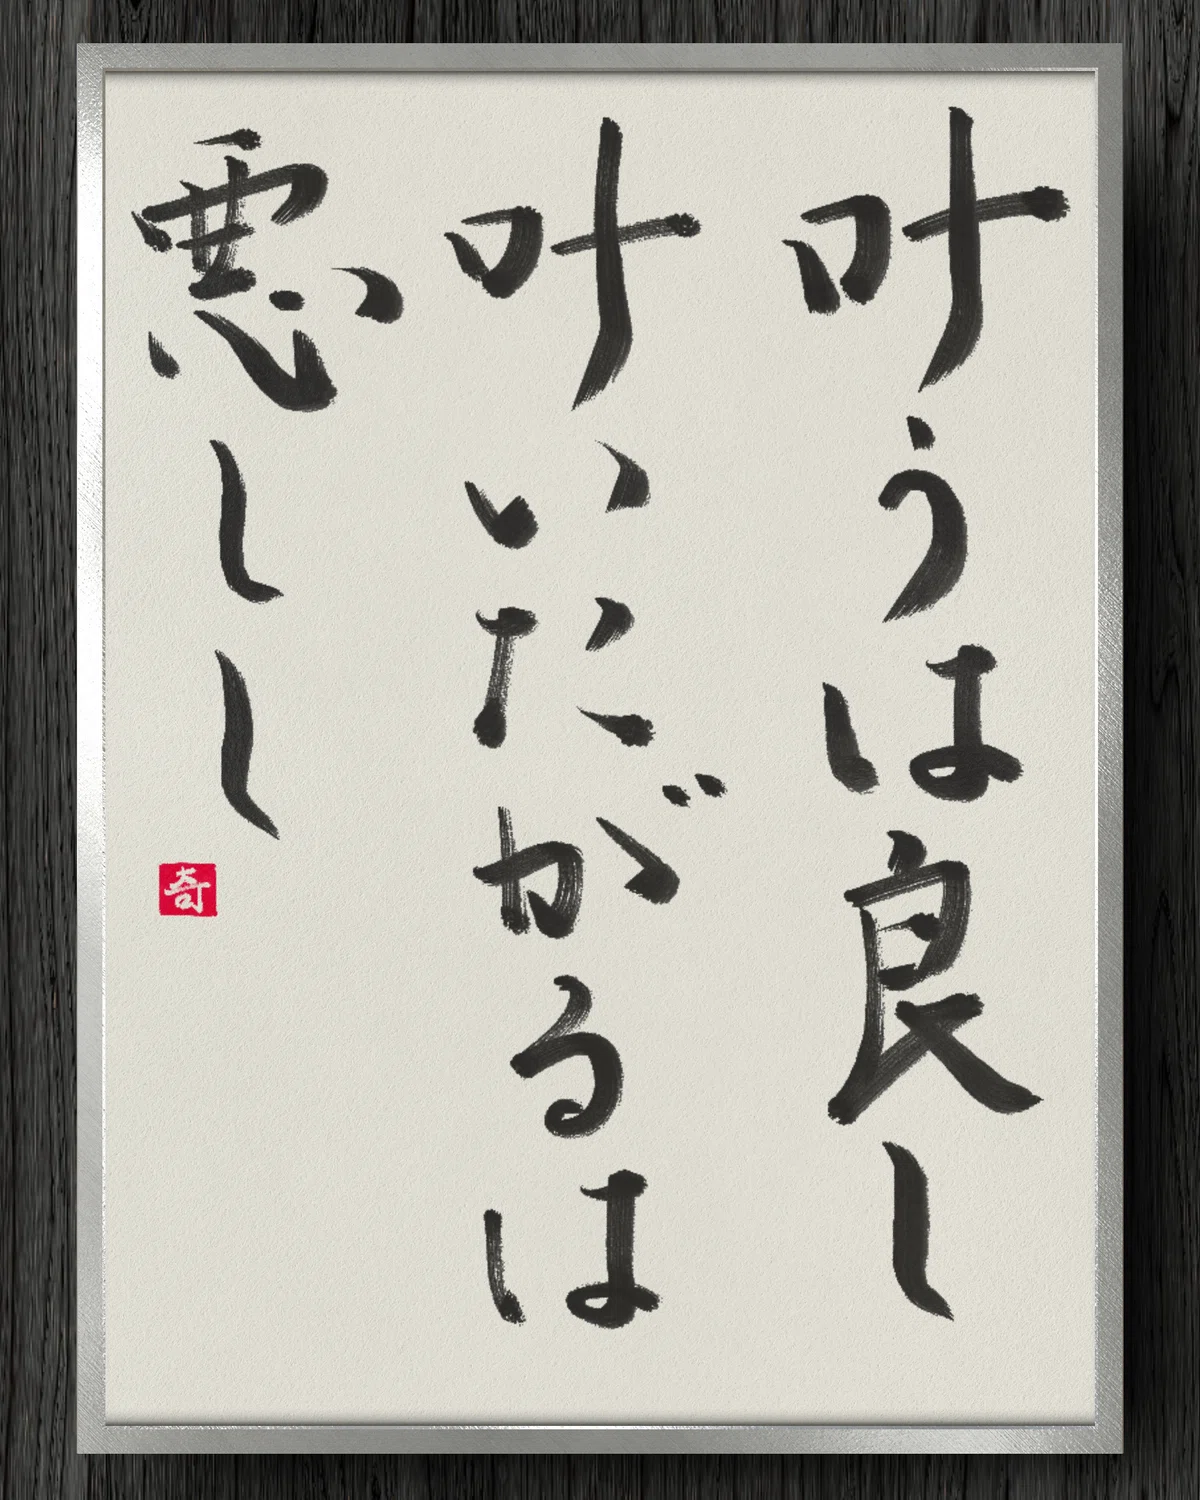 叶うは良し
叶いたがるは
悪しし
奇